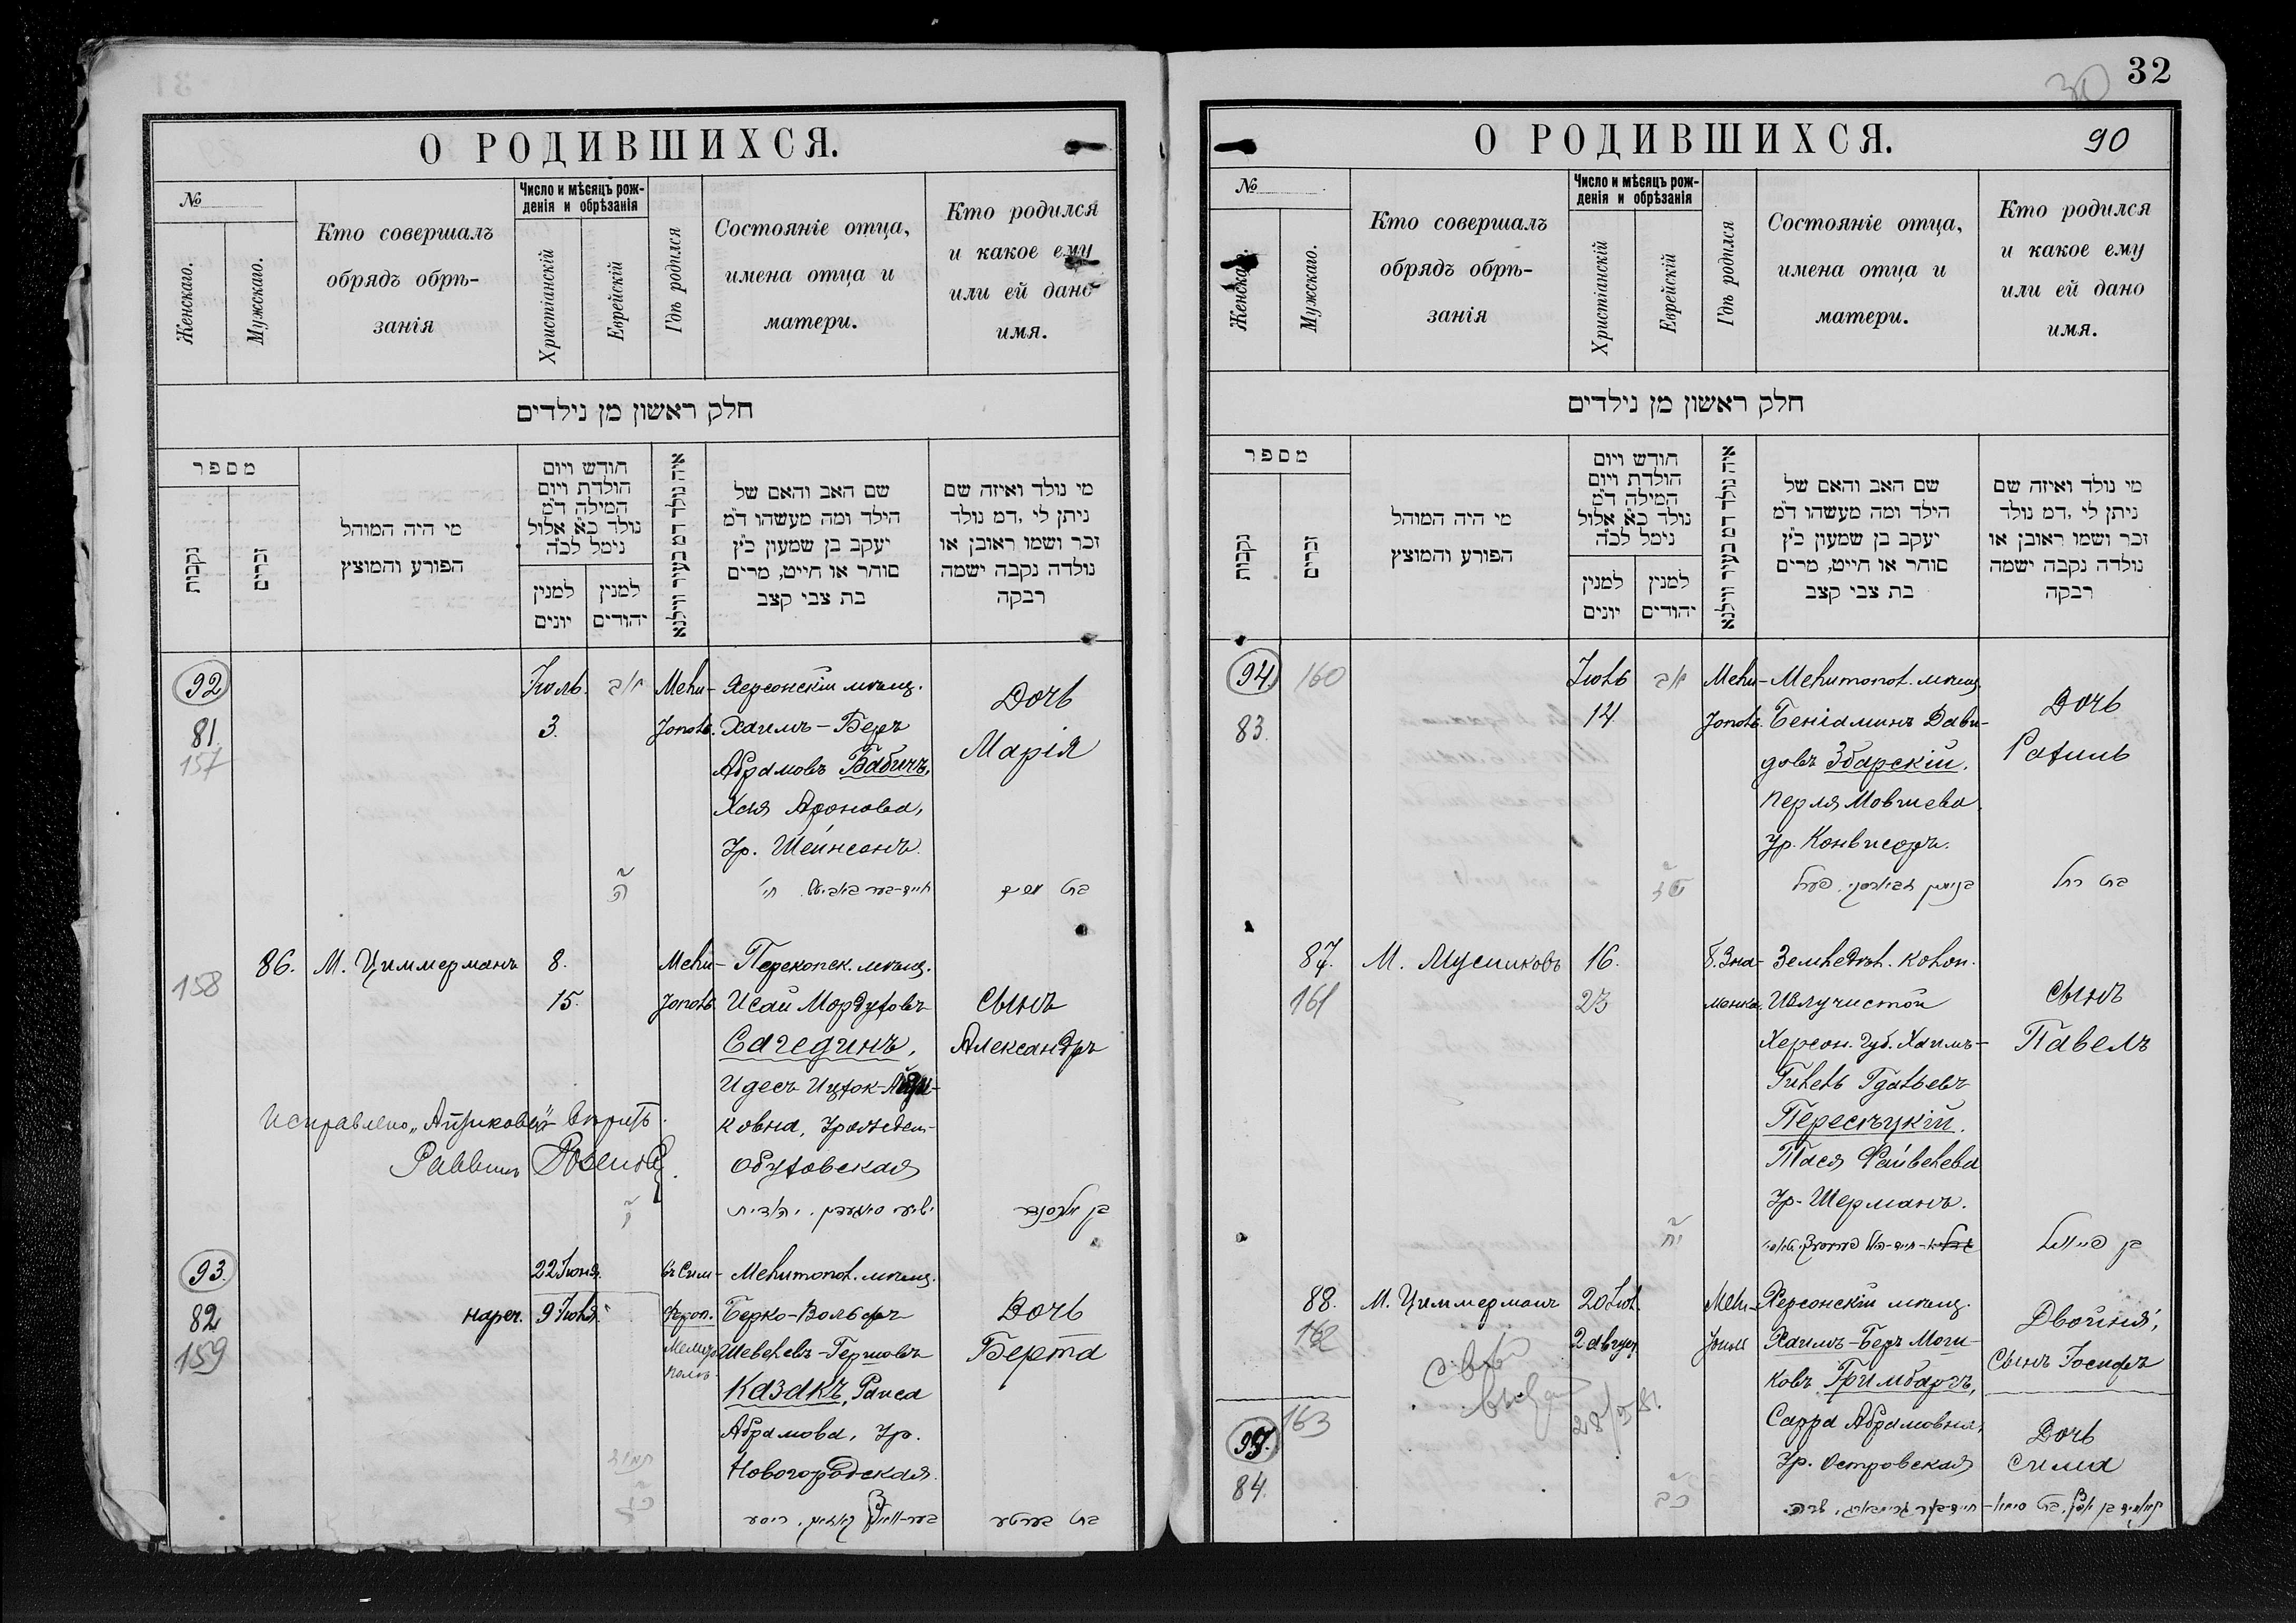 О РОДИВШИХСЯ.
№
Женскаго.
Мужскаго.
Кто совершалъ
обрядъ обрѣ-
занія
Число и мѣсяцъ рож-
денія и обрѣзанія
Христіанскій
Еврейскій
Гдѣ родился
Состояніе отца,
имена отца и
матери.
Кто родился
и какое ему
или ей дано
имя.
חלק ראשון מן נילדים
מספר
נקבות
זכרים
מי היה המוהל
הפורע והמוצץ
חודש ויום
הולדת ויום
המילה ד״מ
נולד כ״א אלול
נימל לכ״ה
למנין
יונים
למנין
יהודים
איה נולד דמ בעיר ווילנא
שם האב והאם של
הילד ומה מעשהו ד״מ
יעקב בן שמעון כ״ץ
סוחר או חייט, מרים
בת צבי קצב
מי נולד ואיזה שם
ניתן לי, דמ נולד
זכר ושמו ראובן או
נולדה נקבה ישמה
רבקה
92
81.
157
Іюль.
3.
Мели-
тополь.
Херсонскій мѣщ.
Хаимъ-Беръ
Абрамовъ Бабичъ,
Хая Аронова,
Ур. Шейнсонъ.
Дочь
Марія
158
86.
М. Циммерманъ
8.
15.
Мели-
тополь.
Перекопск. мѣщ.
Исай Мордуховъ
Сагединъ,
Идесъ Ицхок-Айзи-
ковна, урожден-
Обуховская
сынъ
Александръ
Исправлено „Айзиковна" вѣрить.
Раввинъ
93.
82
159
нареч.
22 Іюня.
9 Іюля.
въ Сим-
фероп.
Мелитопол. мѣщ.
Берко-Вольфъ
Шевелевъ-Гершовъ
Казакъ, Раиса
Абрамова, Ур.
Новогородская.
Дочь
Берта
32
30
О РОДИВШИХСЯ.
90
№
Женскаго.
Мужскаго.
Кто совершалъ
обрядъ обрѣ-
занія
Число и мѣсяцъ рож-
денія и обрѣзанія
Христіанскій
Еврейскій
Гдѣ родился
Состояніе отца,
имена отца и
матери.
Кто родился
и какое ему
или ей дано
имя.
חלק ראשון מן נילדים
מספר
נקבות
זכרים
מי היה המוהל
הפורע והמוצץ
חודש ויום
הולדת ויום
המילה ד״מ
נולד כ״א אלול
נימל לכ״ה
למנין
יונים
למנין
יהודים
איה נולד דמ בעיר ווילנא
שם האב והאם של
הילד ומה מעשהו ד״מ
יעקב בן שמעון כ״ץ
סוחר או חייט, מרים
בת צבי קצב
מי נולד ואיזה שם
ניתן לי, דמ נולד
זכר ושמו ראובן או
נולדה נקבה ישמה
רבקה
94.
160
83.
Іюль
14
Мели-
тополь.
Мелитопол. мѣщ.
Беніаминъ Дави-
довъ Збарскій.
Перля Мовшева
Ур. Конвисоръ.
Дочь
Рахиль
בת רחל
87.
161
М. Мусиковъ
16.
23
Б. Зна-
менка.
Земледѣл. колон.
Излучистой
Херсон. Губ. Хаимъ-
Гилель Гдальевъ
Пересѣцкій.
Тася Файвелева
Ур. Шерманъ.
сынъ
Павелъ
88.
162
М. Циммерманъ
20 Іюл.
2 август
Херсонскій мѣщ.
Хаимъ-Беръ Моти-
ковъ Гримбаргъ,
Сарра Абрамовна,
Ур. Островская
Двойня,
Сынъ Іосифъ
163
84.
Дочь
Сима